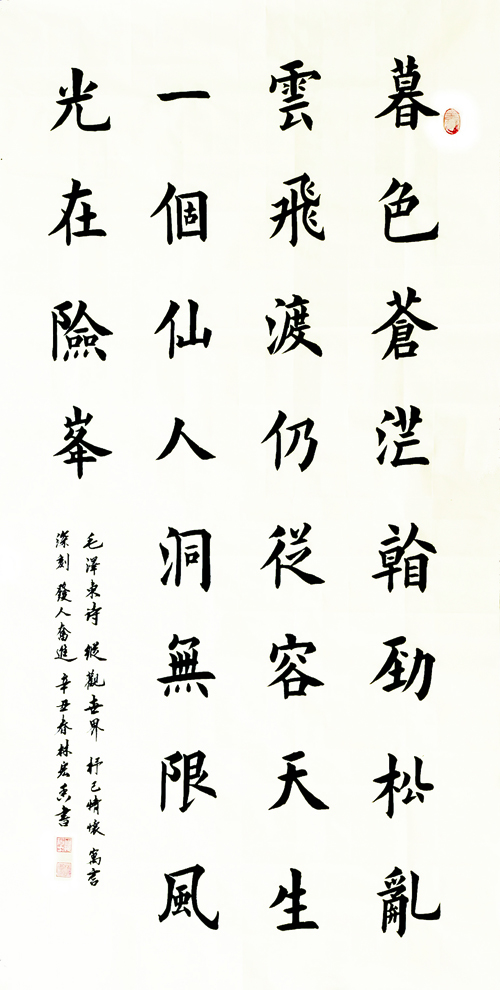 暮色蒼茫看勁松亂
雲飛渡仍從容天生
一個仙人洞無限風
光在險峯
毛澤東诗 縱觀世界 抒己情懷 寓言
深刻 發人奮進 辛丑春林書